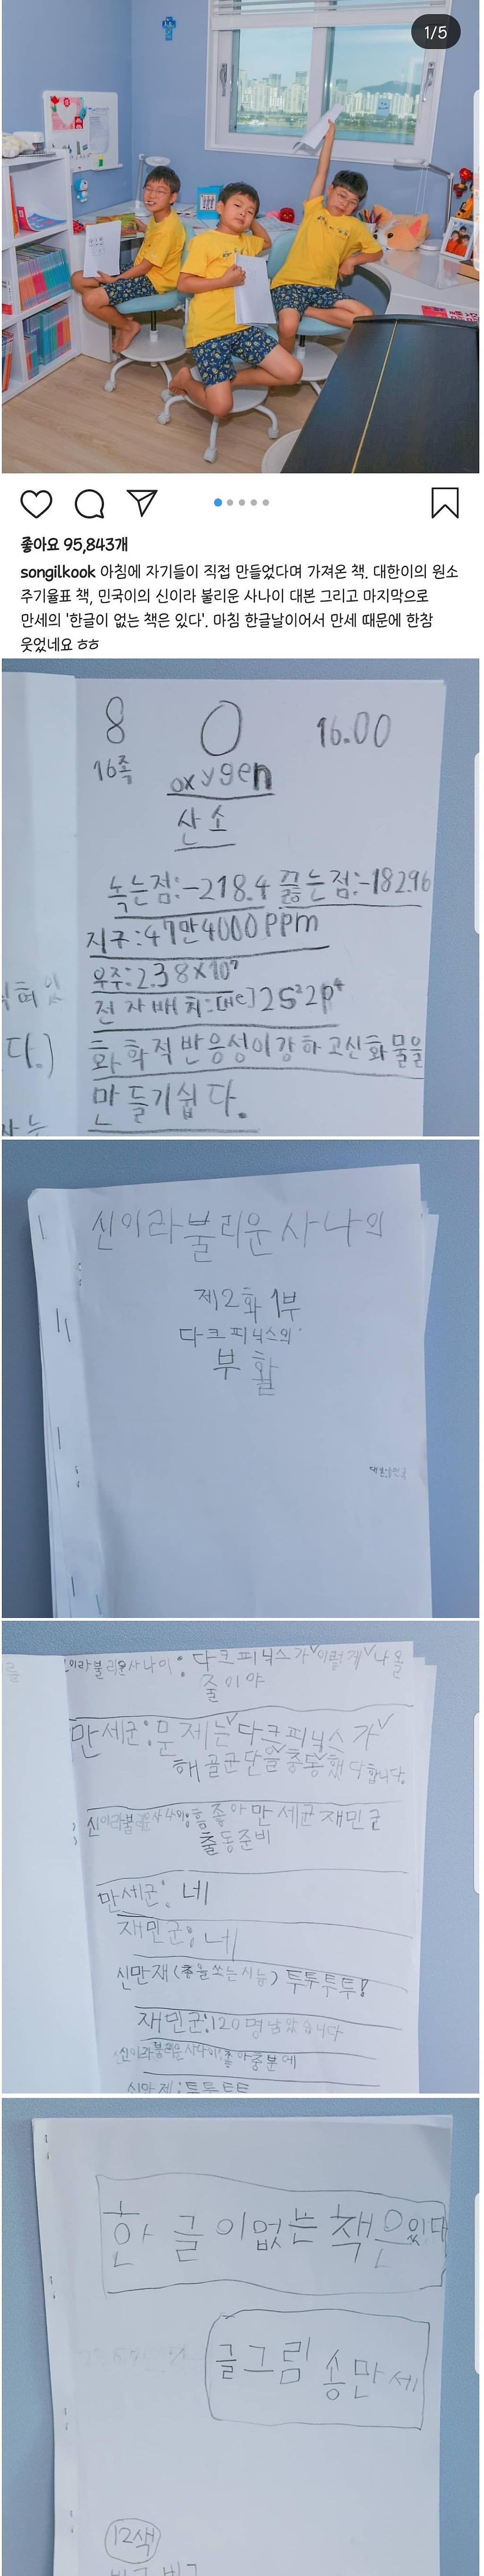 1/5
좋아요 95,843개
songilkook 아침에 자기들이 직접 만들었다며 가져온 책. 대한이의 원소
주기율표 책, 민국이의 신이라 불리운 사나이 대본 그리고 마지막으로
만세의 '한글이 없는 책은 있다'. 마침 한글날이어서 만세 때문에 한참
웃었네요 ㅎㅎ
8 O 16.00
16족
oxygen
산소
녹는점:-218.4 끓는점:-182.96
지구:47만4000ppm
우주:2.38×10⁷
전자배치:[He]2S²2P⁴
화학적반응성이강하고신화물을
만들기쉽다.
다.)
신이라불리운사나의
제2화 1부
다크피닉스의
부활
신이라불리운사나이: 다크피닉스가 이렇게 나올
줄이야
만세군:문제는 다크피닉스가
해골군단을 충동했다합니다.
신이라불리운사나이:흠좋아만세군재민군
출동준비
만세군: 네
재민군: 네
신만재(총을쏘는시늉) 투투투투!
재민군:120명남았습니다
신이라불리운사나이:좋아충분해
신만제:투투트트
한글이없는책은있다
글그림 송만세
12색